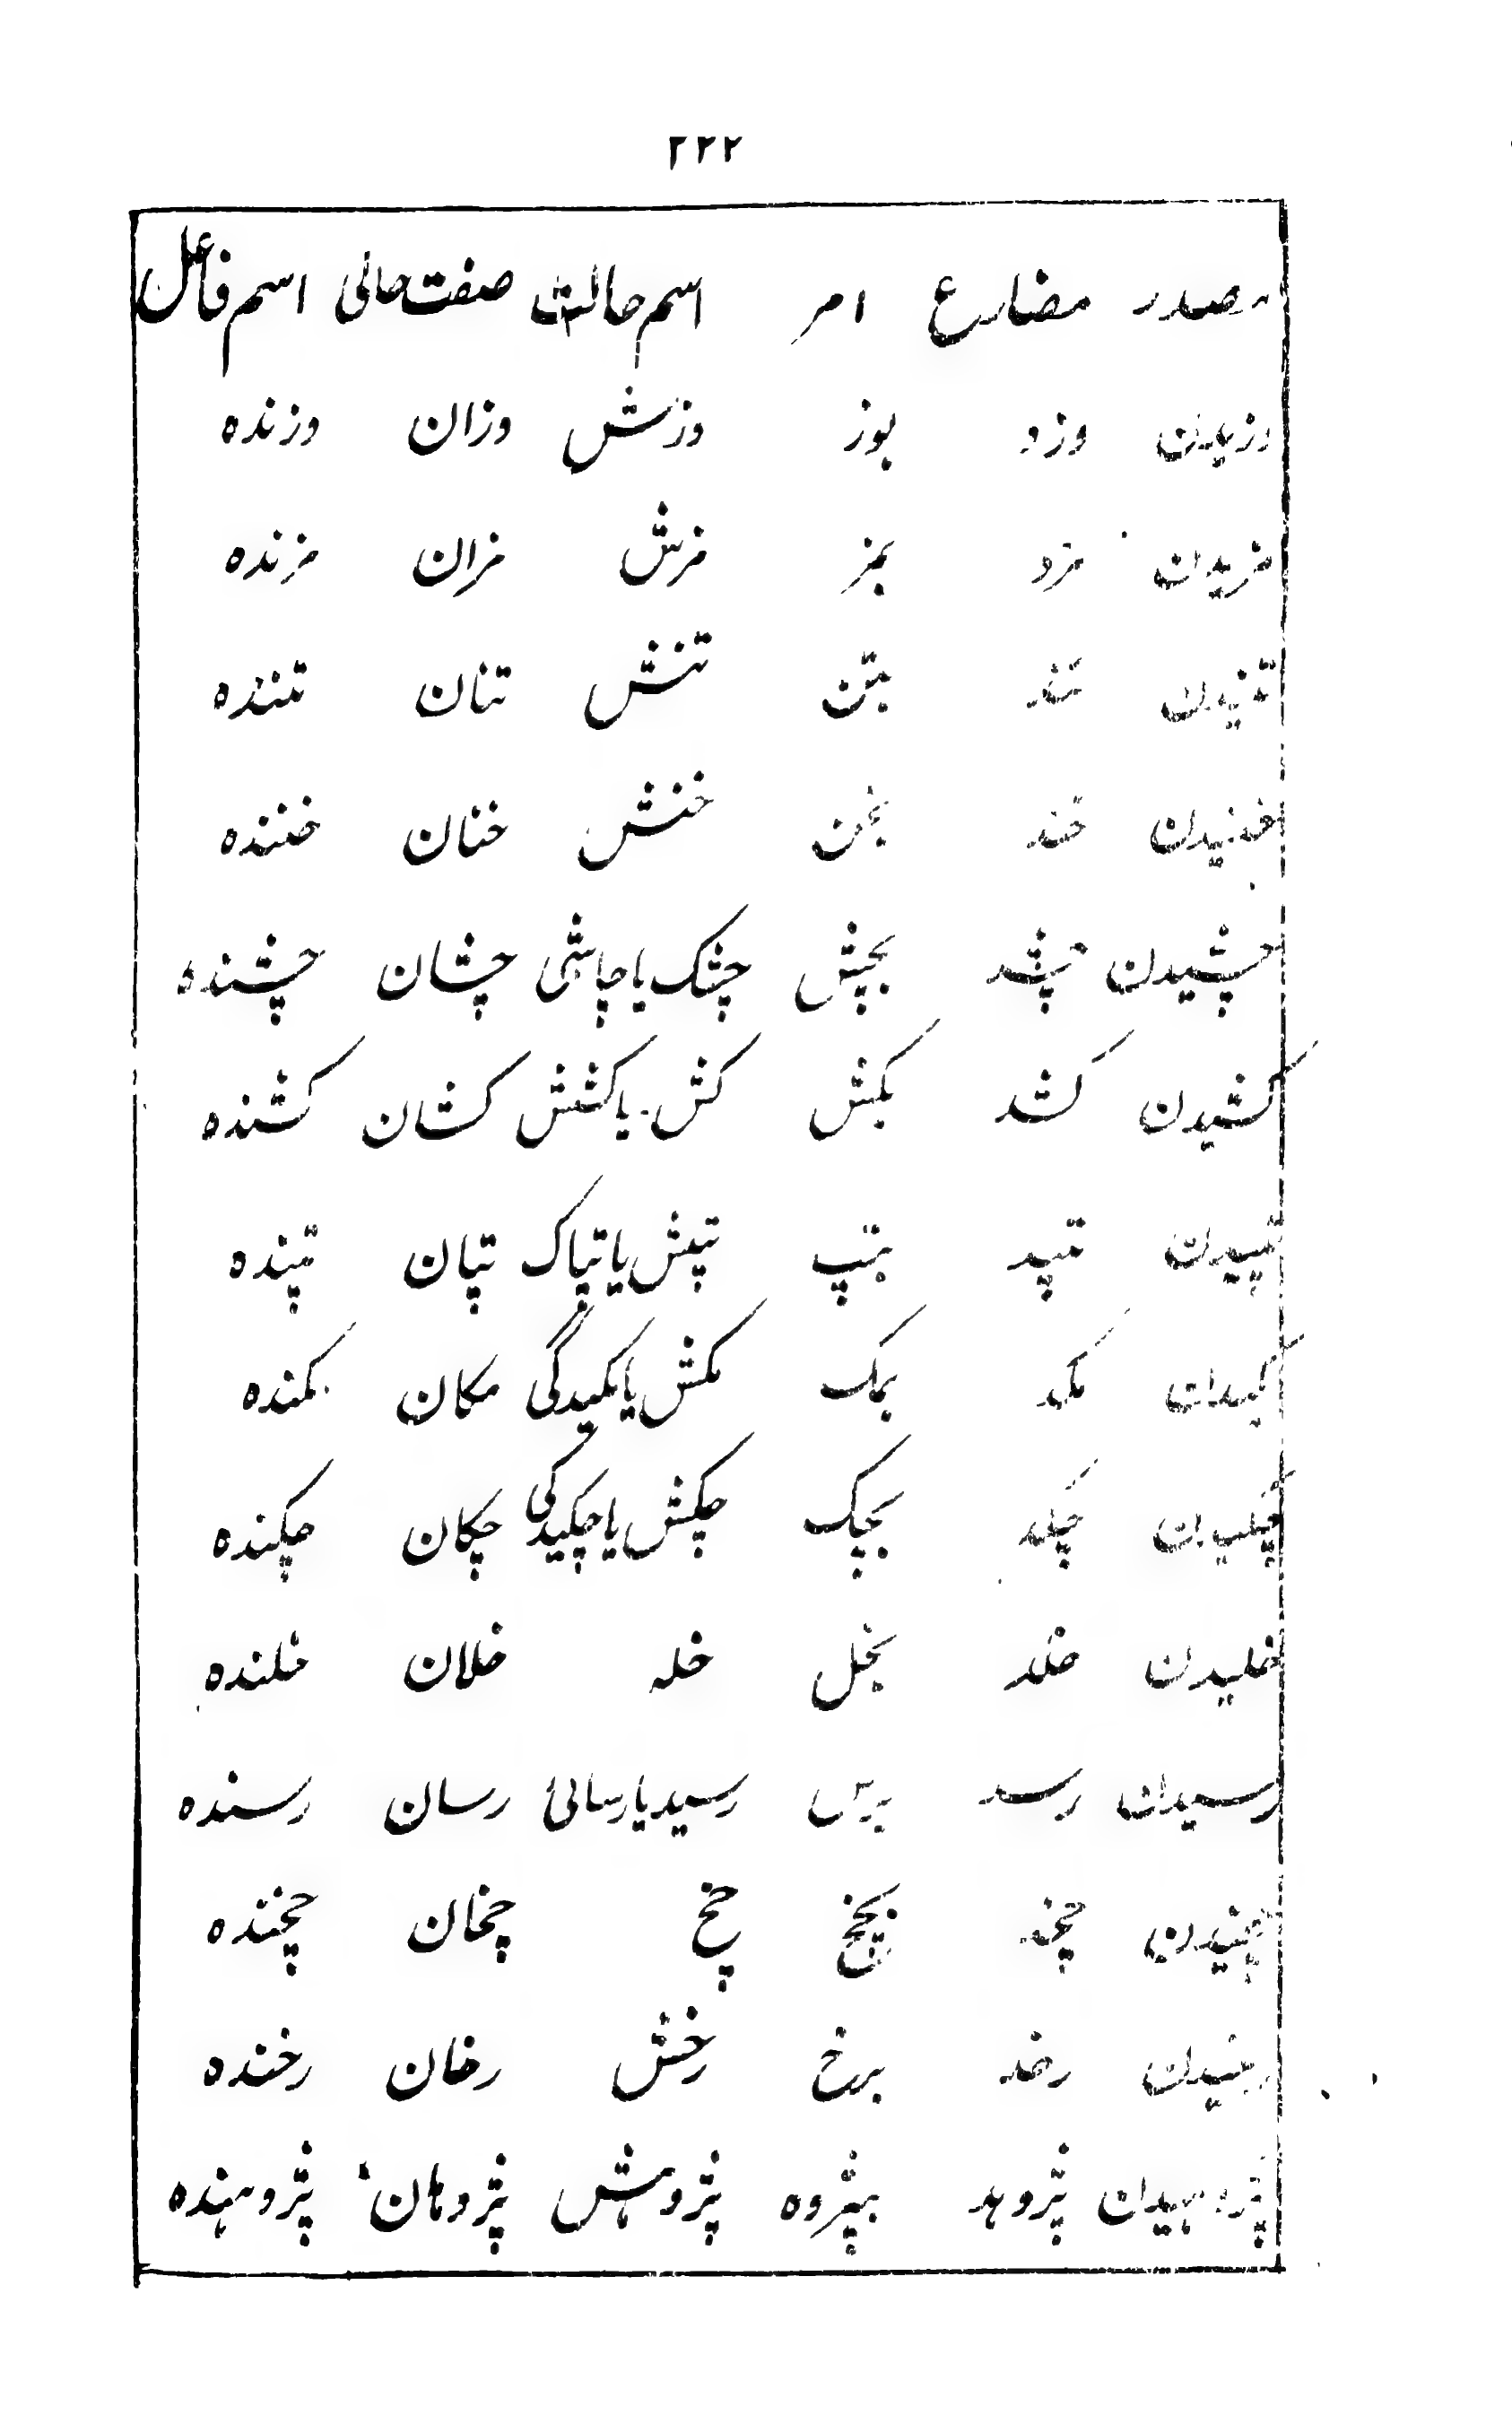 ۲۲۲
مصدر مضارع امر اسم حالت صفت حالی اسم فاعل
وزیدن وزد بوز وزش وزان وزنده
مزیدن مزد بمز مزش مزان مزنده
تنیدن تند بتن تنش تنان تننده
خنیدن خند بخن خنش خنان خننده
چشیدن چشد بچش چشک یا چاشنی چشان چشنده
کشیدن کشد بکش کش یا کشش کشان کشنده
تپیدن تپد بتپ تپش یا تپاک تپان تپنده
مکیدن مکد بمک مکش یا مکیدگی مکان مکنده
چکیدن چکد بچک چکش یا چکیدگی چکان چکنده
خلیدن خلد بخل خله خلان خلنده
رسیدن رسد برس رسید یا رسائی رسان رسنده
چخیدن چخد بچخ چخ چخان چخنده
رخیدن رخد برخ رخش رخان رخنده
پژوهیدن پژوهد بپژوه پژوهش پژوهان پژوهنده